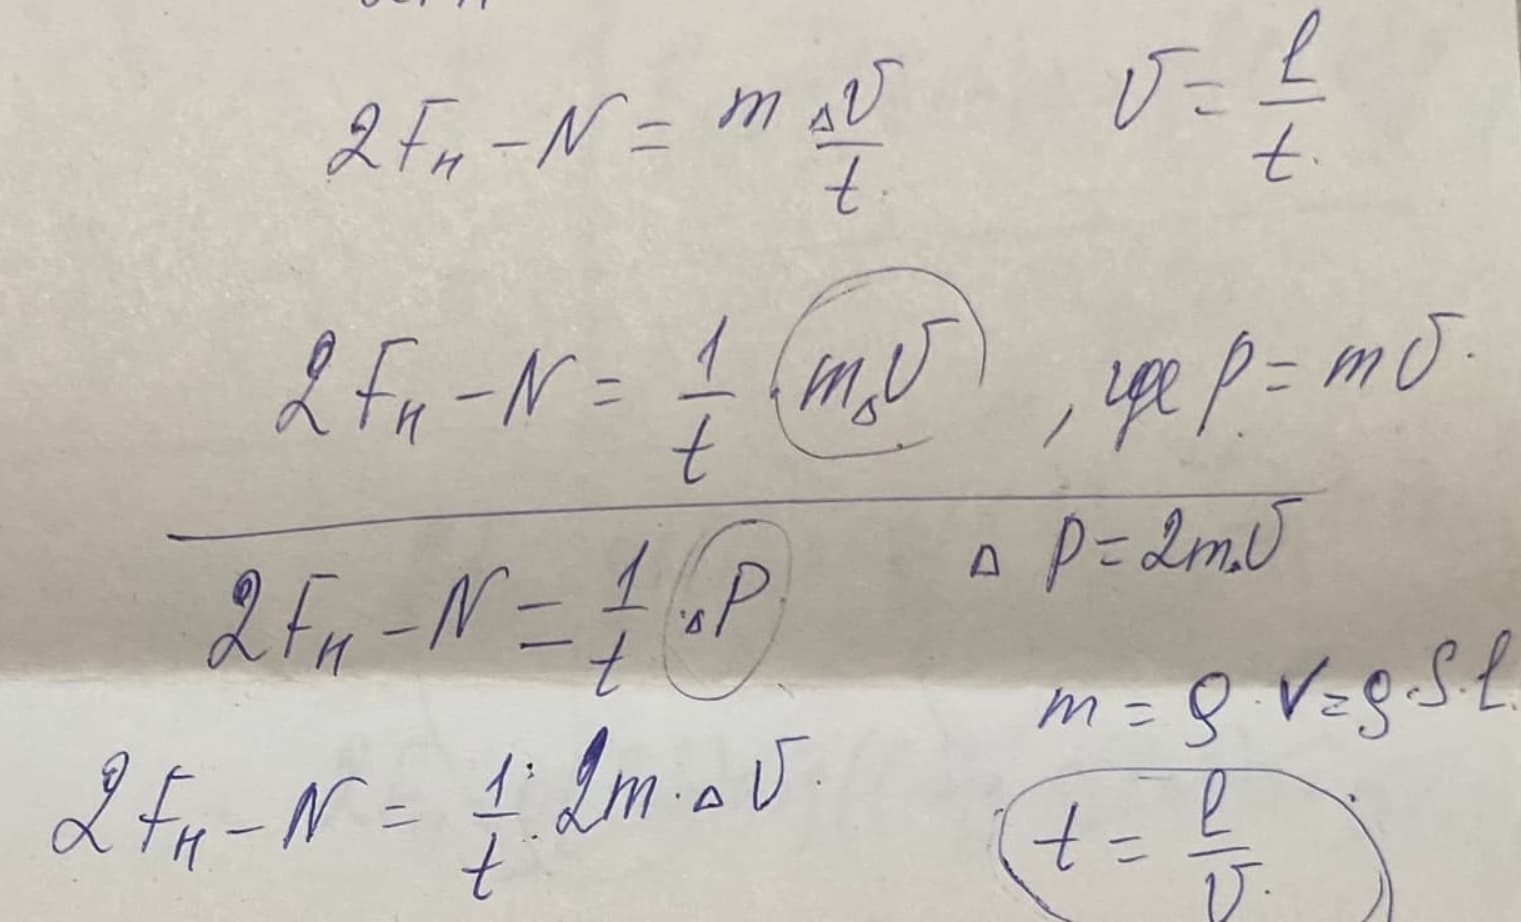 2Fн - N = m Δv/t    v = l/t.
2Fн - N = 1/t · mΔv , где p = mv.
2Fн - N = 1/t · ΔP    Δ p = 2mv
m = ρ · V = ρ · S · l.
2Fн - N = 1/t · 2m · Δ v.    t = l/v.